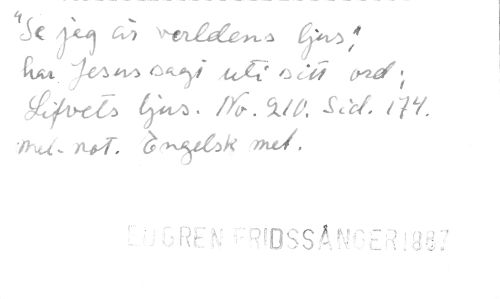 "Se jag är verldens ljus,"
har Jesus sagt uti sitt ord;
Lifvets ljus. No. 210. Sid. 174.
Mel. not. Engelsk mel.
EDGREN FRIDSSÅNGER 1887